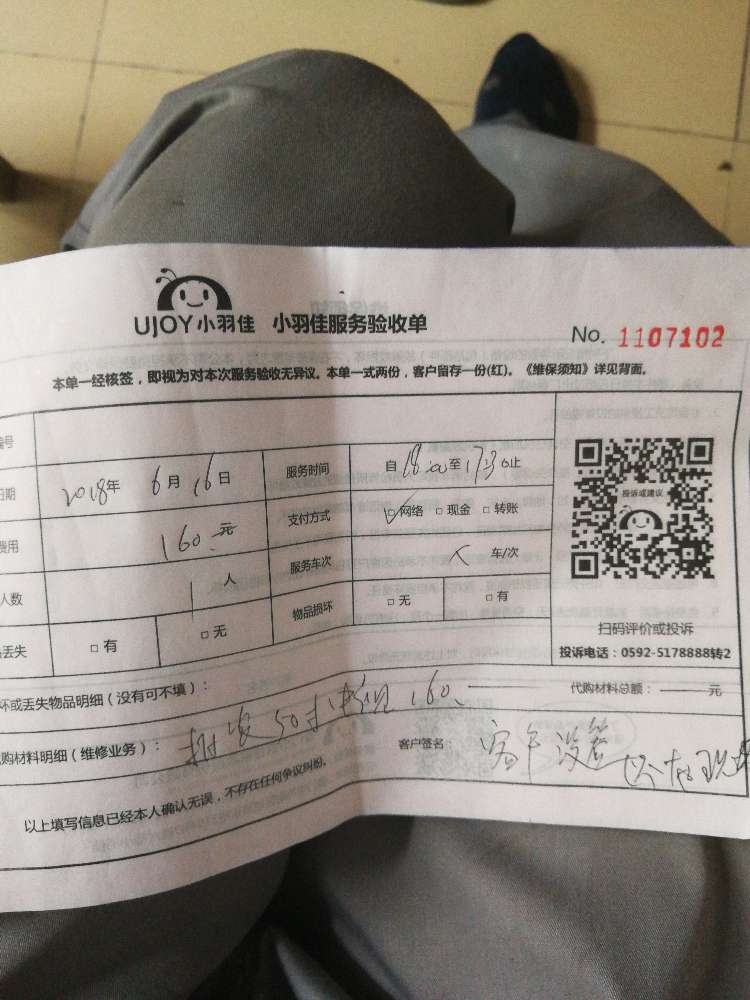 UJOY小羽佳 小羽佳服务验收单
No. 1107102
本单一经核签，即视为对本次服务验收无异议。本单一式两份，客户留存一份(红)。《维保须知》详见背面。
号
日期 2018年 6月16日 服务时间 自 至 止
费用 160.元 支付方式 网络 □ 现金 □ 转账
人数 1人 服务车次 车/次
丢失 □ 有 □ 无 物品损坏 □ 无 □ 有
投诉或建议
扫码评价或投诉
投诉电话：0592-5178888转2
坏或丢失物品明细（没有可不填）：
代购材料总额： 元
购材料明细（维修业务）： 50寸 160.
客户签名： 客户没签
以上填写信息已经本人确认无误，不存在任何争议纠纷。